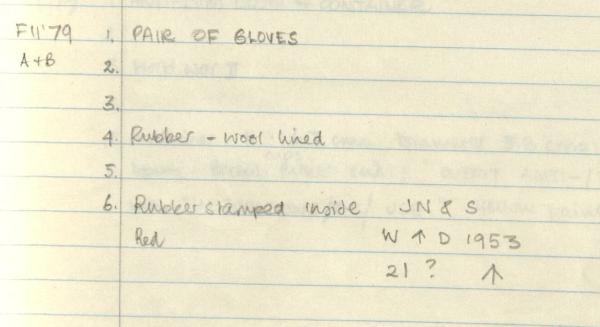 F11'79 1. PAIR OF GLOVES
A+B 2.
3.
4. Rubber - wool lined
5.
6. Rubber stamped inside JN & S
Red W ↑ D 1953
21 ? ↑